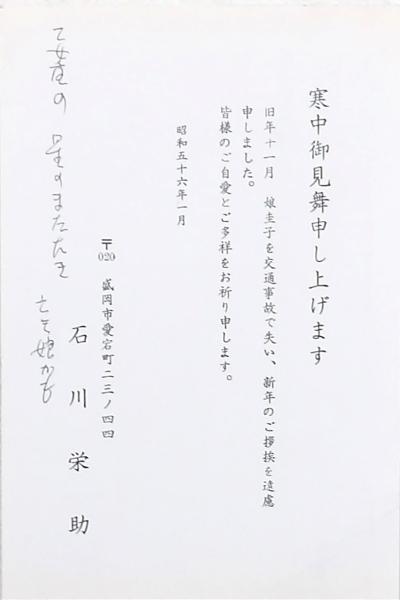 寒中御見舞申し上げます
旧年十一月　娘圭子を交通事故で失い、新年のご挨拶を遠慮
申しました。
皆様のご自愛とご多祥をお祈り申します。
昭和五十六年一月
〒020　盛岡市愛宕町二三ノ四四
石川栄助
乙女座の 星のまたたき
娘かも